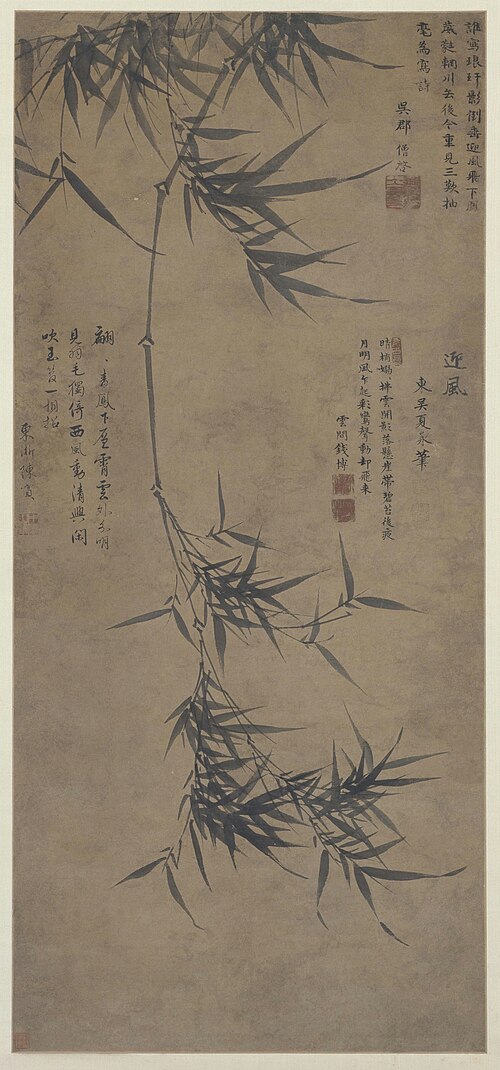 誰寫琅玕影倒垂迎風飛下鳳
葳蕤輞川去後今重見三歎抽
毫為寫詩
吳郡僧啓
迎風
東吳夏昶筆
晴梢嫋嫋拂雲開影落懸崖帶碧苔後夜
月明風乍起彩鸞聲動却飛來
雲間錢博
翩〻青鳳下層霄雲外分明
見羽毛獨倚西風動清興閑
吹玉管一相招
東浙陳